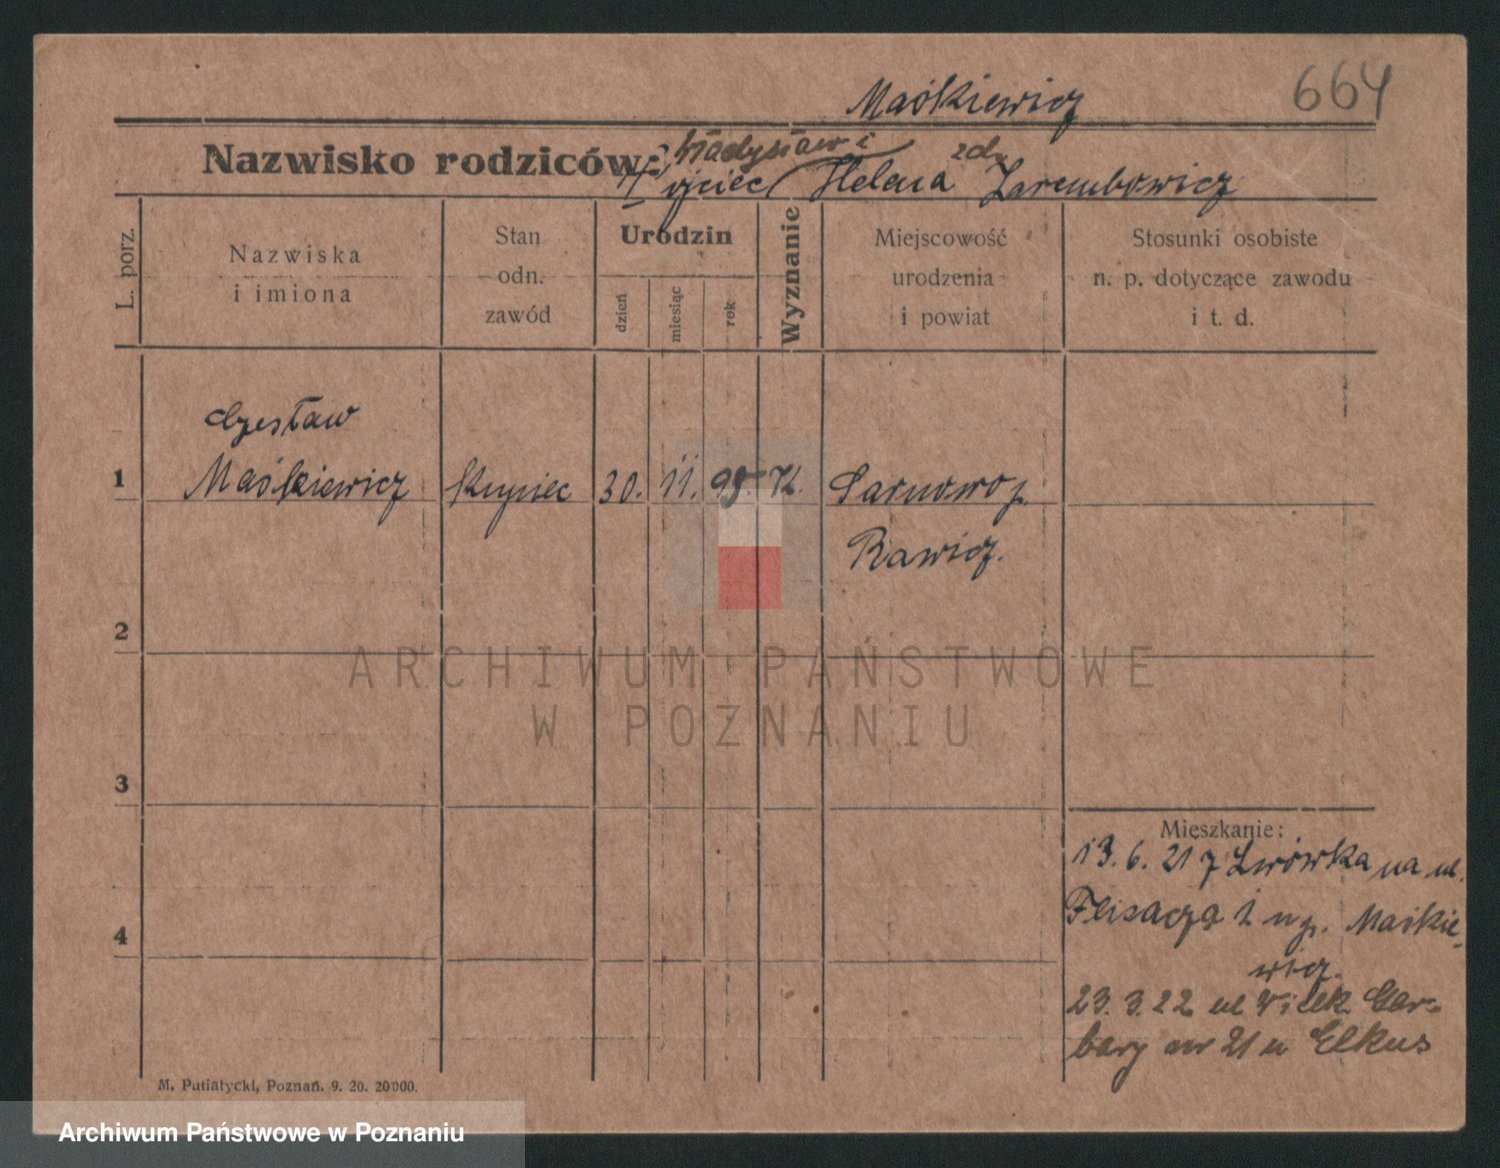 664
Maśkiewicz
Nazwisko rodziców: Władysław i zd.
ojciec Helena Zarembowicz
L. porz.
Nazwiska
i imiona
Stan
odn.
zawód
Urodzin
dzień
miesiąc
rok
Wyznanie
Miejscowość
urodzenia
i powiat
Stosunki osobiste
n. p. dotyczące zawodu
i t. d.
Czesław
1 Maśkiewicz Kupiec 30. 11. 95. K. Sarnowo p.
Rawicz.
2
ARCHIWUM PAŃSTWOWE
W POZNANIU
3
Mieszkanie:
13. 6. 21 z Lwówka na ul.
Flisacza 1 u p. Maśkie-
4
wicz.
23. 3. 22 ul Wielk Gar-
bary nr 21 u Elkus
M. Putiatycki, Poznań. 9. 20. 20000.
Archiwum Państwowe w Poznaniu